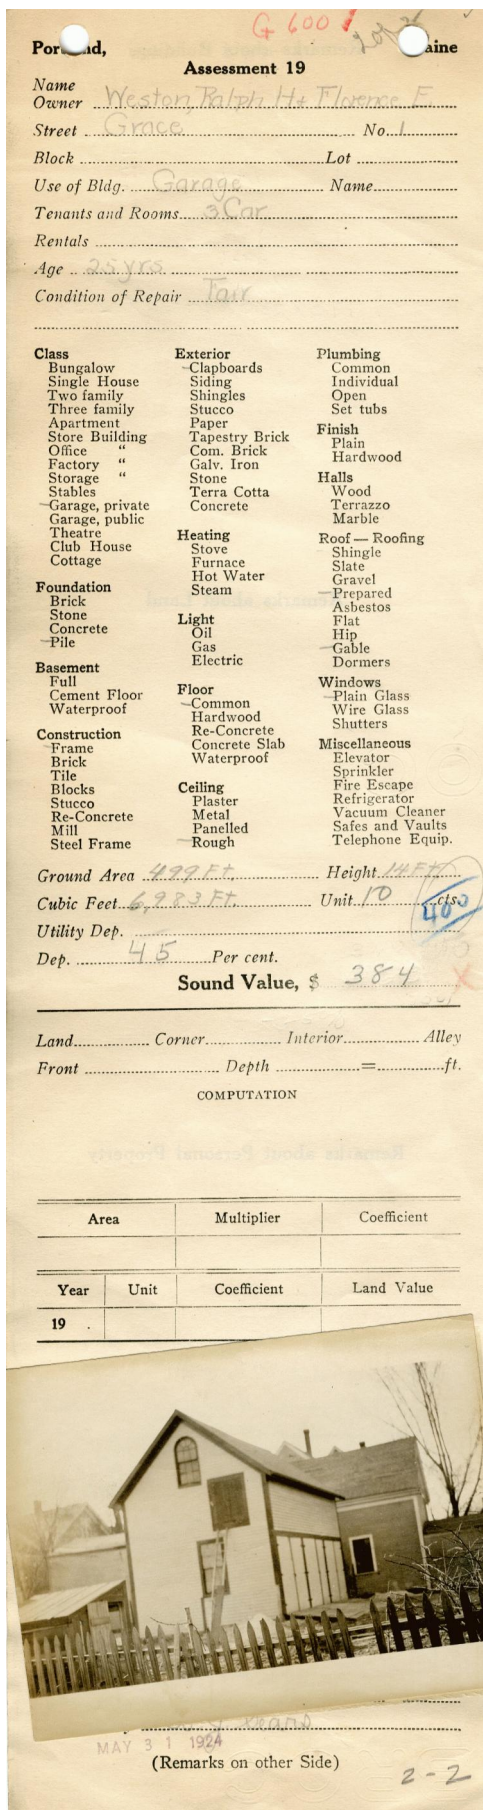 G 600
Portland, Maine
Assessment 19
Name
Owner Weston, Ralph H & Florence E.
Street Grace No. 1
Block Lot
Use of Bldg. Garage Name
Tenants and Rooms 3 Car
Rentals
Age 25 yrs
Condition of Repair Fair
Class
Bungalow
Single House
Two family
Three family
Apartment
Store Building
Office "
Factory "
Storage "
Stables
Garage, private
Garage, public
Theatre
Club House
Cottage
Foundation
Brick
Stone
Concrete
Pile
Basement
Full
Cement Floor
Waterproof
Construction
Frame
Brick
Tile
Blocks
Stucco
Re-Concrete
Mill
Steel Frame
Exterior
Clapboards
Siding
Shingles
Stucco
Paper
Tapestry Brick
Com. Brick
Galv. Iron
Stone
Terra Cotta
Concrete
Heating
Stove
Furnace
Hot Water
Steam
Light
Oil
Gas
Electric
Floor
Common
Hardwood
Re-Concrete
Concrete Slab
Waterproof
Ceiling
Plaster
Metal
Panelled
Rough
Plumbing
Common
Individual
Open
Set tubs
Finish
Plain
Hardwood
Halls
Wood
Terrazzo
Marble
Roof — Roofing
Shingle
Slate
Gravel
Prepared
Asbestos
Flat
Hip
Gable
Dormers
Windows
Plain Glass
Wire Glass
Shutters
Miscellaneous
Elevator
Sprinkler
Fire Escape
Refrigerator
Vacuum Cleaner
Safes and Vaults
Telephone Equip.
Ground Area 499 Ft. Height 14 Ft.
Cubic Feet 6,983 Ft. Unit 10 cts.
400
Utility Dep.
Dep. 45 Per cent.
Sound Value, $ 384
Land Corner Interior Alley
Front Depth = ft.
COMPUTATION
Area Multiplier Coefficient
Year Unit Coefficient Land Value
19 .
MAY 31 1924
(Remarks on other Side)
2-2